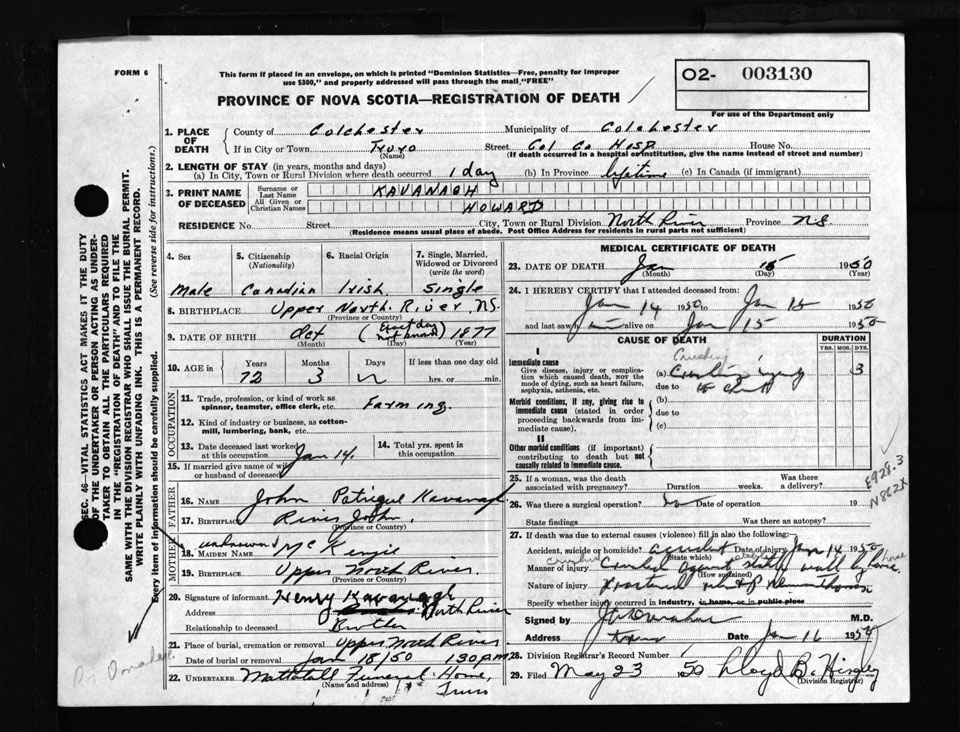 FORM 6
This form if placed in an envelope, on which is printed "Dominion Statistics—Free, penalty for improper
use $300," and properly addressed will pass through the mail, "FREE"
O2- 003130
PROVINCE OF NOVA SCOTIA—REGISTRATION OF DEATH
For use of the Department only
1. PLACE OF DEATH County of Colchester Municipality of Colchester
If in City or Town Truro Street Col Co Hosp House No.
(Name) (If death occurred in a hospital or institution, give the name instead of street and number)
2. LENGTH OF STAY (in years, months and days)
(a) In City, Town or Rural Division where death occurred 1 day (b) In Province lifetime (c) In Canada (if immigrant)
3. PRINT NAME OF DECEASED Surname or Last Name KAVANAGH
All Given or Christian Names HOWARD
RESIDENCE No. Street City, Town or Rural Division North River Province N.S.
(Residence means usual place of abode. Post Office Address for residents in rural parts not sufficient)
4. Sex 5. Citizenship (Nationality) 6. Racial Origin 7. Single, Married, Widowed or Divorced (write the word)
Male Canadian Irish Single
8. BIRTHPLACE Upper North River, N.S.
(Province or Country)
9. DATE OF BIRTH Oct (Exact day not known) 1877
(Month) (Day) (Year)
10. AGE in Years Months Days If less than one day old
72 3 hrs. or min.
OCCUPATION
11. Trade, profession, or kind of work as spinner, teamster, office clerk, etc. Farming.
12. Kind of industry or business, as cotton-mill, lumbering, bank, etc.
13. Date deceased last worked at this occupation Jan 14. 14. Total yrs. spent in this occupation
15. If married give name of wife or husband of deceased
FATHER
16. Name John Kavanagh
17. Birthplace River John.
(Province or Country)
MOTHER
18. Maiden Name unknown McKenzie
19. Birthplace Upper North River.
(Province or Country)
20. Signature of informant Henry Kavanagh
Address North River
Relationship to deceased Brother
21. Place of burial, cremation or removal Upper North River
Date of burial or removal Jan 18/50 1 30 pm
22. UNDERTAKER Mattatall Funeral Home,
(Name and address) Truro
MEDICAL CERTIFICATE OF DEATH
23. DATE OF DEATH Jan 15 1950
(Month) (Day) (Year)
24. I HEREBY CERTIFY that I attended deceased from:
Jan 14 1950 to Jan 15 1950
and last saw h im alive on Jan 15 1950
CAUSE OF DEATH DURATION
YRS. MOS. DYS.
I
Immediate cause
Give disease, injury or complication which caused death, not the mode of dying, such as heart failure, asphyxia, asthenia, etc.
Crushing
(a) Crushing injury 3
due to to chest
Morbid conditions, if any, giving rise to immediate cause (stated in order proceeding backwards from immediate cause).
(b)
due to
(c)
II
Other morbid conditions (if important) contributing to death but not causally related to immediate cause.
25. If a woman, was the death associated with pregnancy? Duration weeks. Was there a delivery?
E928.3
N862X
26. Was there a surgical operation? no Date of operation 19
State findings Was there an autopsy?
27. If death was due to external causes (violence) fill in also the following:
Accident, suicide or homicide? accident Date of injury Jan 14 1950
(State which)
crushed stable horse
Manner of injury Crushed against stable wall by horse.
(How sustained)
Nature of injury Fractured ribs & hemothorax
Specify whether injury occurred in industry, in home, or in public place
Signed by M.D.
Address Truro Date Jan 16 1950
28. Division Registrar's Record Number
29. Filed May 23 50 Lloyd B.
(Division Registrar)
SEC. 46—VITAL STATISTICS ACT MAKES IT THE DUTY
OF THE UNDERTAKER OR PERSON ACTING AS UNDER-
TAKER TO OBTAIN ALL THE PARTICULARS REQUIRED
IN THE "REGISTRATION OF DEATH" AND TO FILE THE
SAME WITH THE DIVISION REGISTRAR WHO SHALL ISSUE THE BURIAL PERMIT.
WRITE PLAINLY WITH UNFADING INK. THIS IS A PERMANENT RECORD.
Every item of information should be carefully supplied. (See reverse side for instructions.)